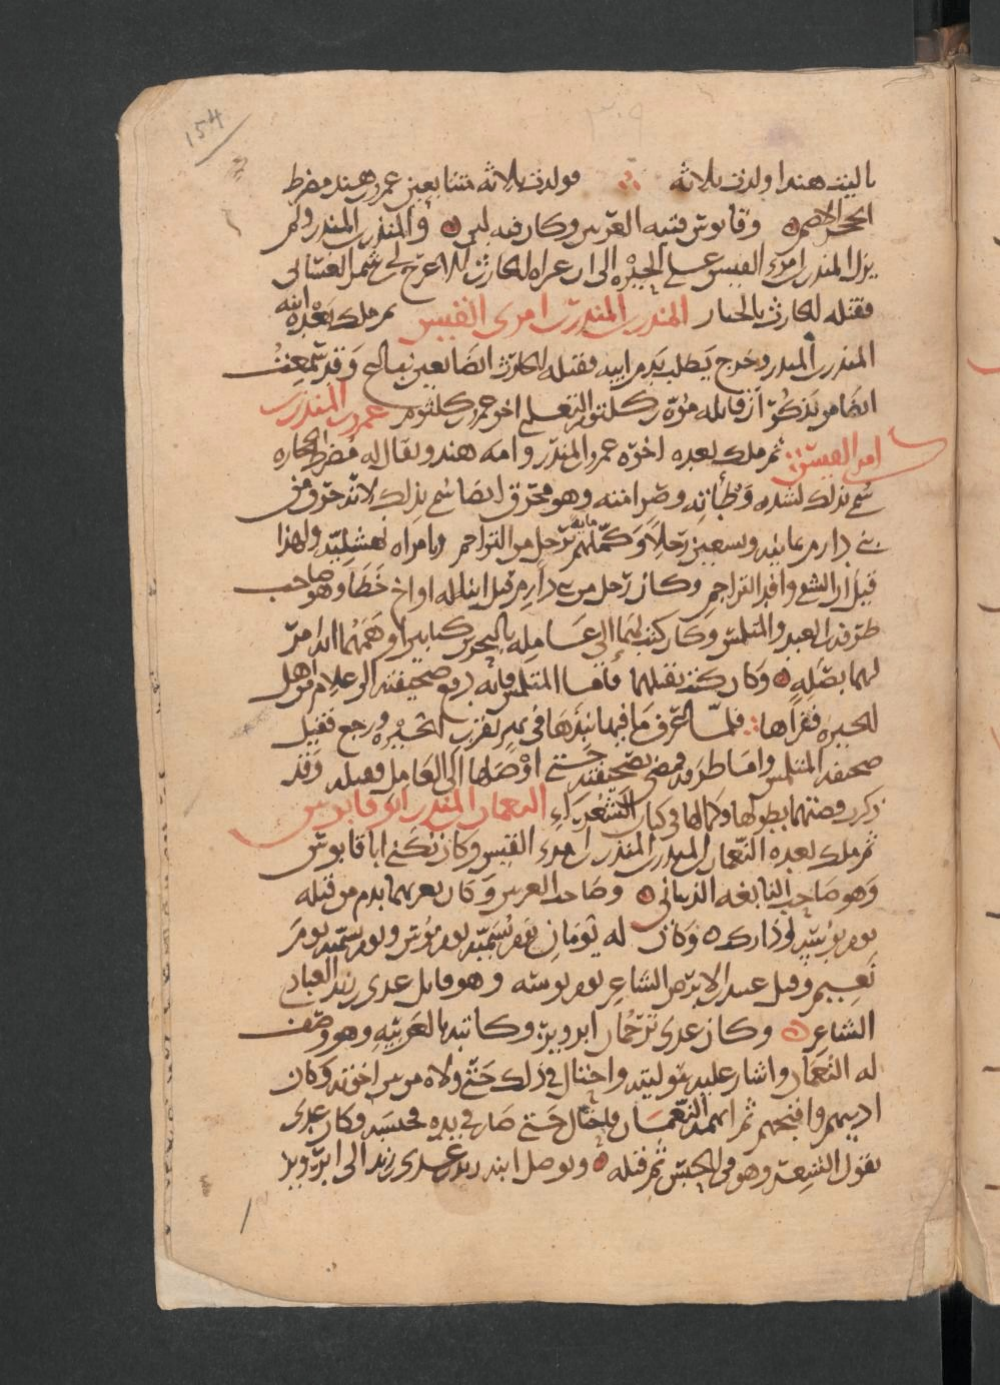 154
٣٠٩
باليت هندا ولدت ثلاثة ∴ فولدت ثلاثة متتابعين عمرو بن هند مضرط
الحجر الاصم وقابوس قينة العرس وكان فيه لين والمنذر بن المنذر ولم
يزل المنذر بن امرء القيس على الحيرة الى ان غزاه الحارث الاعرج بن ابي شمر الغساني
فقتله الحارث بالحيار المنذر بن المنذر بن امرى القيس ثم ملك بعده ابنه
المنذر بن المنذر وخرج يطلب بدم ابيه فقتله الحارث ايضا بعين اباغ وقد سمعت
ايضا من يذكر ان قاتله مرة بن كلثوم التغلبي اخو عمرو بن كلثوم عمرو بن المنذر بن
امرء القيس ∴ ثم ملك بعده اخوه عمرو بن المنذر وامه هند ويقال له مضرط الحجاره
سمي بذلك لشده وطأته وصرامته وهو محرق ايضا سمي بذلك لانه حرق من
بني دارم ثمانية وتسعين رجلا وكملهم مايه برجل من البراجم وبامراه نهشليه ولهذا
قيل ان الشقي وافد البراجم وكان رجل من بني دارم قتل ابنا له او اخ خطا وهو صاحب
طرفة بن العبد والمتلمس وكان كتب لهما الى عامله بالبحرين كتابين اوهمهما انه امر
لهما بصله وكان كتب بقتلهما فاما المتلمس فانه دفع صحيفته الى غلام من اهل
الحيره فقراها ∴ فلما عرف ما فيها نبذها في نهر بقرب الحيره ورجع فقيل
صحيفه المتلمس واما طرفه فمضى بصحيفته حتى اوصلها الى العامل فقتله وقد
ذكرت قصتهما بطولها وكمالها في كتاب الشعراء النعمان بن المنذر ابو قابوس
ثم ملك بعده النعمان بن المنذر بن المنذر بن امرء القيس وكان يكنى ابا قابوس
وهو صاحب النابغه الذبياني وصاحب الغريين وكان يغريهما بدم من قتله
يوم بؤسه لوذارك وكان له يومان يوم يسميه يوم بؤس ويوم يسميه يوم
نعيم وقتل عبيد بن الابرص الشاعر يوم بوسه وهو قاتل عدي بن زيد العبادي
الشاعر وكان عدي ترجمان ابرويز وكاتبه بالعربيه وهو وصف
له النعمان واشار عليه بتوليته واحتال في ذلك حتى ولاه من بين اخوته وكان
ادبهم واقبحهم ثم اتهمه النعمان فاحتال حتى صار في يده فحبسه فكان عدي
يقول الشعر وهو في الحبس ثم قتله وتوصل ابنه زيد بن عدي بن زيد الى ابرويز